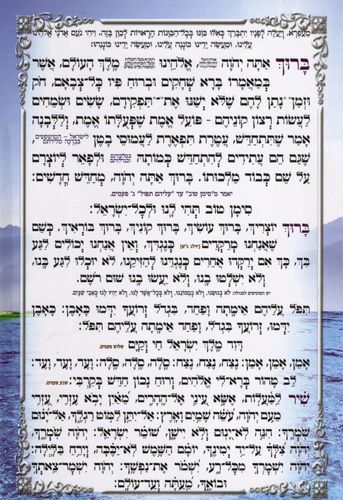 בָּרוּךְ אַתָּה יְהוָה, אֱלֹהֵינוּ מֶלֶךְ הָעוֹלָם, אֲשֶׁר
בְּמַאֲמָרוֹ בָּרָא שְׁחָקִים וּבְרוּחַ פִּיו כָּל־צְבָאָם, חֹק
וּזְמַן־נָתַן לָהֶם שֶׁלֹּא יְשַׁנּוּ אֶת־תַּפְקִידָם, שָׂשִׂים וּשְׂמֵחִים
לַעֲשׂוֹת רְצוֹן קוֹנֵיהֶם - פּוֹעֵל אֱמֶת שֶׁפְּעֻלָּתוֹ אֱמֶת, וְלַלְּבָנָה
אָמַר שֶׁתִּתְחַדֵּשׁ, עֲטֶרֶת תִּפְאֶרֶת לַעֲמוּסֵי בָטֶן
שֶׁגַּם הֵם עֲתִידִים לְהִתְחַדֵּשׁ כְּמוֹתָהּ וּלְפָאֵר לְיוֹצְרָם
עַל שֵׁם כְּבוֹד מַלְכוּתוֹ. בָּרוּךְ אַתָּה יְהוָה, מְחַדֵּשׁ חֳדָשִׁים:
יאמר מ"סימן טוב" עד "עליהם תפול" ג' פעמים.
סִימָן טוֹב תְּהִי לָנוּ וּלְכָל־יִשְׂרָאֵל:
בָּרוּךְ יוֹצְרֵיךְ, בָּרוּךְ עוֹשֵׂיךְ, בָּרוּךְ קוֹנֵיךְ, בָּרוּךְ בּוֹרְאֵיךְ. כְּשֵׁם
שֶׁאֲנַחְנוּ מְרַקְּדִים כְּנֶגְדֵּךְ, וְאֵין אֲנַחְנוּ יְכוֹלִים לִגַּע
בָּךְ, כָּךְ אִם יְרַקְּדוּ אֲחֵרִים כְּנֶגְדֵּנוּ לְהַזִּיקֵנוּ, לֹא יוּכְלוּ לִגַּע בָּנוּ,
וְלֹא יִשְׁלְטוּ בָנוּ, וְלֹא יַעֲשׂוּ בָנוּ שׁוּם רֹשֶׁם.
תִּפֹּל עֲלֵיהֶם אֵימָתָה וָפַחַד, בִּגְדֹל זְרוֹעֲךָ יִדְּמוּ כָּאָבֶן: כָּאָבֶן
יִדְּמוּ, זְרוֹעֲךָ בִּגְדֹל, וָפַחַד אֵימָתָה עֲלֵיהֶם תִּפֹּל:
דָּוִד מֶלֶךְ יִשְׂרָאֵל חַי וְקַיָּם שלוש פעמים.
אָמֵן, אָמֵן, אָמֵן: נֶצַח, נֶצַח, נֶצַח: סֶלָה, סֶלָה, סֶלָה: וָעֶד, וָעֶד, וָעֶד:
לֵב טָהוֹר בְּרָא־לִי אֱלֹהִים, וְרוּחַ נָכוֹן חַדֵּשׁ בְּקִרְבִּי: שבע פעמים.
שִׁיר לַמַּעֲלוֹת, אֶשָּׂא עֵינַי אֶל־הֶהָרִים, מֵאַיִן יָבֹא עֶזְרִי, עֶזְרִי
מֵעִם יְהוָה, עֹשֵׂה שָׁמַיִם וָאָרֶץ: אַל־יִתֵּן לַמּוֹט רַגְלֶךָ, אַל־יָנוּם
שֹׁמְרֶךָ: הִנֵּה לֹא־יָנוּם וְלֹא יִישָׁן, שׁוֹמֵר יִשְׂרָאֵל: יְהוָה שֹׁמְרֶךָ,
יְהוָה צִלְּךָ עַל־יַד יְמִינֶךָ, יוֹמָם הַשֶּׁמֶשׁ לֹא־יַכֶּכָּה, וְיָרֵחַ בַּלָּיְלָה:
יְהוָה יִשְׁמָרְךָ מִכָּל־רָע, יִשְׁמֹר אֶת־נַפְשֶׁךָ: יְהוָה יִשְׁמָר־צֵאתְךָ
וּבוֹאֶךָ, מֵעַתָּה וְעַד־עוֹלָם: